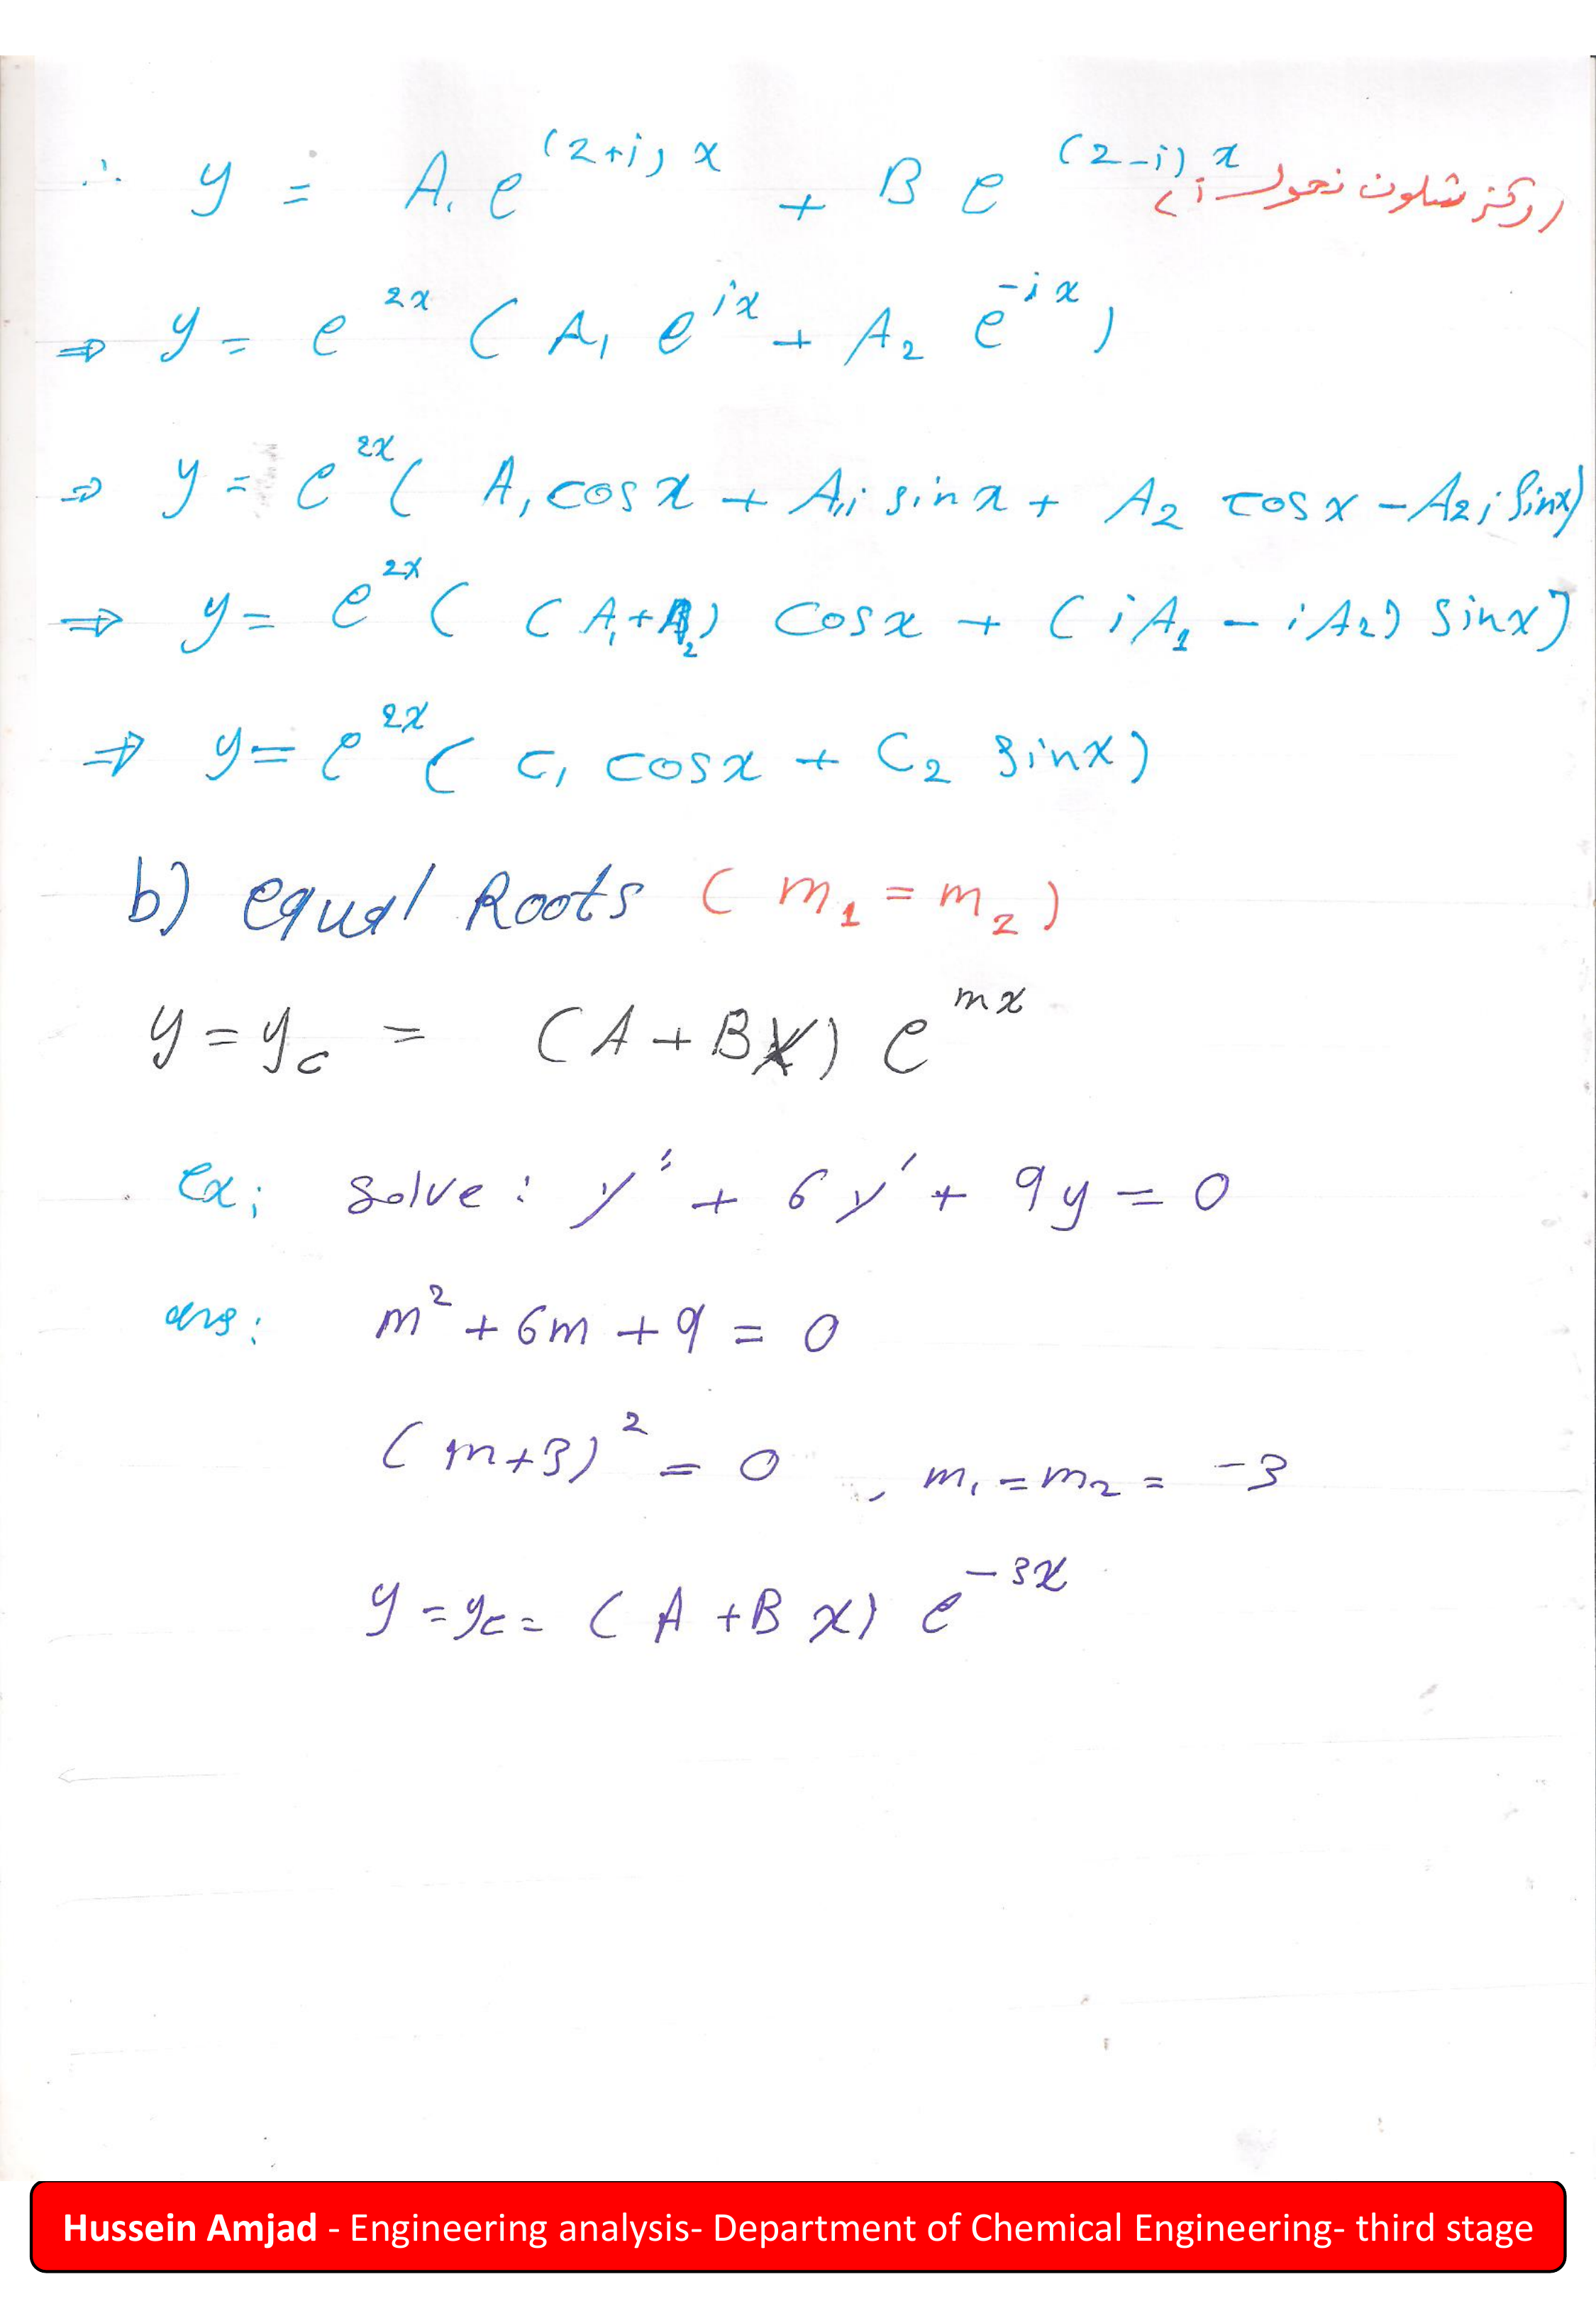 ∴ y = A₁ e^(2+i)x + B e^(2-i)x (ركز شلون نحول i)
⇒ y = e^2x ( A₁ e^ix + A₂ e^-ix )
⇒ y = e^2x ( A₁ cosx + A₁i sinx + A₂ cosx - A₂i sinx)
⇒ y = e^2x ( ( A₁+A₂) cosx + ( iA₁ - iA₂) sinx)
⇒ y = e^2x ( C₁ cosx + C₂ sinx)
b) equal Roots ( m₁ = m₂ )
y = y_c = (A + Bx) e^mx
ex; solve: y'' + 6y' + 9y = 0
ans: m² + 6m + 9 = 0
( m+3)² = 0 , m₁ = m₂ = -3
y = y_c = ( A + B x) e^-3x
Hussein Amjad - Engineering analysis- Department of Chemical Engineering- third stage